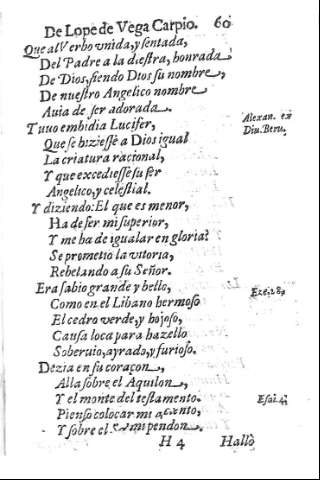 De Lope de Vega Carpio. 60
Que al Verbo vnida, y sentada,
Del Padre a la diestra, honrada
De Dios, siendo Dios su nombre,
De nuestro Angelico nombre
Auia de ser adorada.
Tuuo embidia Lucifer,
Alexan. ex
Diu. Beru.
Que se hiziesse à Dios igual
La criatura racional,
Y que excediesse su ser
Angelico, y celestial.
Y diziendo: El que es menor,
Ha de ser mi superior,
Y me ha de igualar en gloria?
Se prometiò la vitoria,
Rebelando a su Señor.
Era sabio grande y bello,
Eze. 28.
Como en el Libano hermoso
El cedro verde, y hojoso,
Causa loca para hazello
Soberuio, ayrado, y furioso.
Dezia en su coraçon,
Alla sobre el Aquilon,
Y el monte del testamento.
Esai. 4.
Pienso colocar mi assiento,
Y sobre el
H 4 Hallò